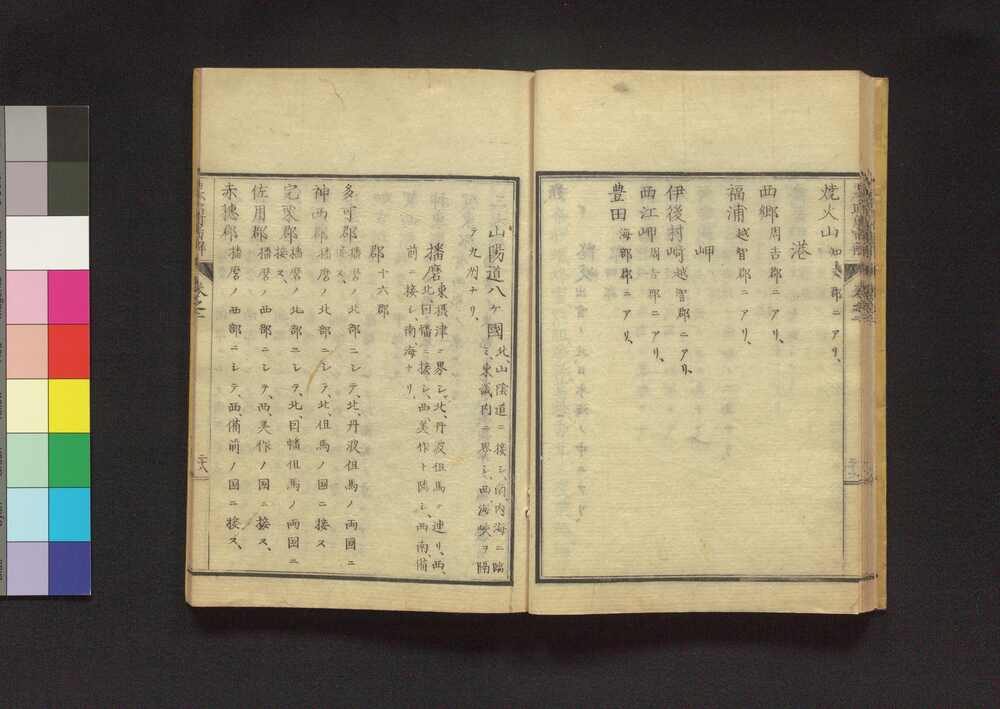 焼火山知夫郡ニアリ、
港
西郷周吉郡ニアリ、
福浦越智郡ニアリ、
岬
伊後村崎越智郡ニアリ、
西江岬周吉郡ニアリ、
豊田海部郡ニアリ、
山陽道八ケ國北、山陰道ニ接シ、南、内海ニ臨
ミ、東、畿内ニ界シ、西、海峡ヲ隔
テ九州ナリ、
播磨東、摂津ニ界シ、北、丹波但馬ニ連リ、西、
北、因幡ニ接シ、西、美作ト隣シ、西南、備
前ニ接シ、南、海ナリ、
郡十六郡
多可郡播磨ノ北部ニシテ、北、丹波但馬ノ両國ニ
接ス、
神西郡播磨ノ北部ニシテ、北、但馬ノ国ニ接ス
完粟郡播磨ノ北部ニシテ、北、因幡但馬ノ両国ニ
接ス、
佐用郡播磨ノ西部ニシテ、西、美作ノ国ニ接ス、
赤穂郡播磨ノ西部ニシテ、西、備前ノ国ニ接ス、
巻之二
二十八